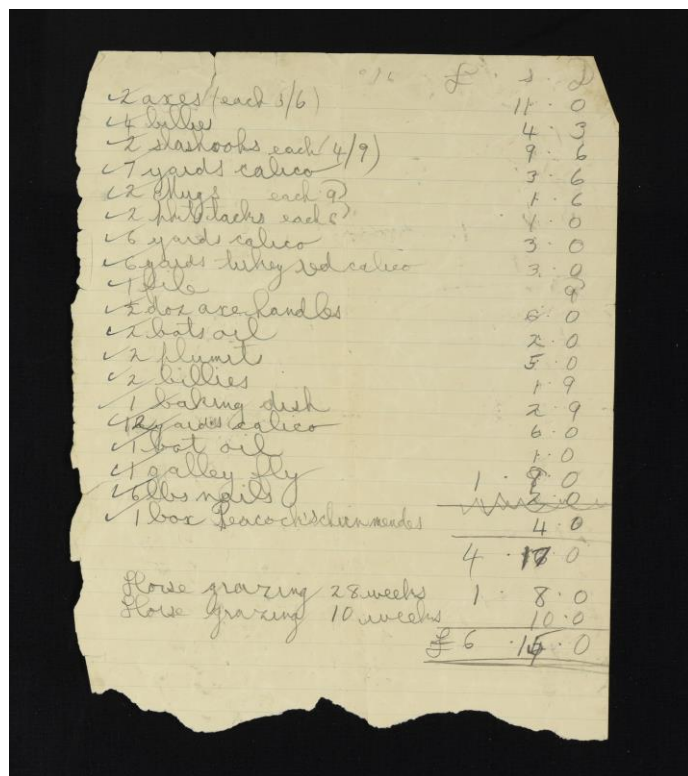 £ . s . d
✓2 axes (each 5/6) 11 . 0
✓4 billies 4 . 3
✓2 slashooks each (4/9) 9 . 6
✓7 yards calico 3 . 6
✓2 each 9) 1 . 6
✓2 pkts tacks each 4 . 0
✓6 yards calico 3 . 0
✓6 yards turkey red calico 3 . 0
✓1 file 9
✓½ doz axe handles 6 . 0
✓2 bots oil 2 . 0
✓2 plumit 5 . 0
✓2 billies 1 . 9
✓1 baking dish 2 . 9
✓12 yards calico 6 . 0
✓1 bot oil 1 . 0
✓1 galley fly 1 . 9 . 0
✓6 lbs nails 2 . 0
✓1 box Peacock's 4 . 0
4 . 17 . 0
Horse grazing 28 weeks 1 . 8 . 0
Horse grazing 10 weeks 10 . 0
£ 6 . 15 . 0